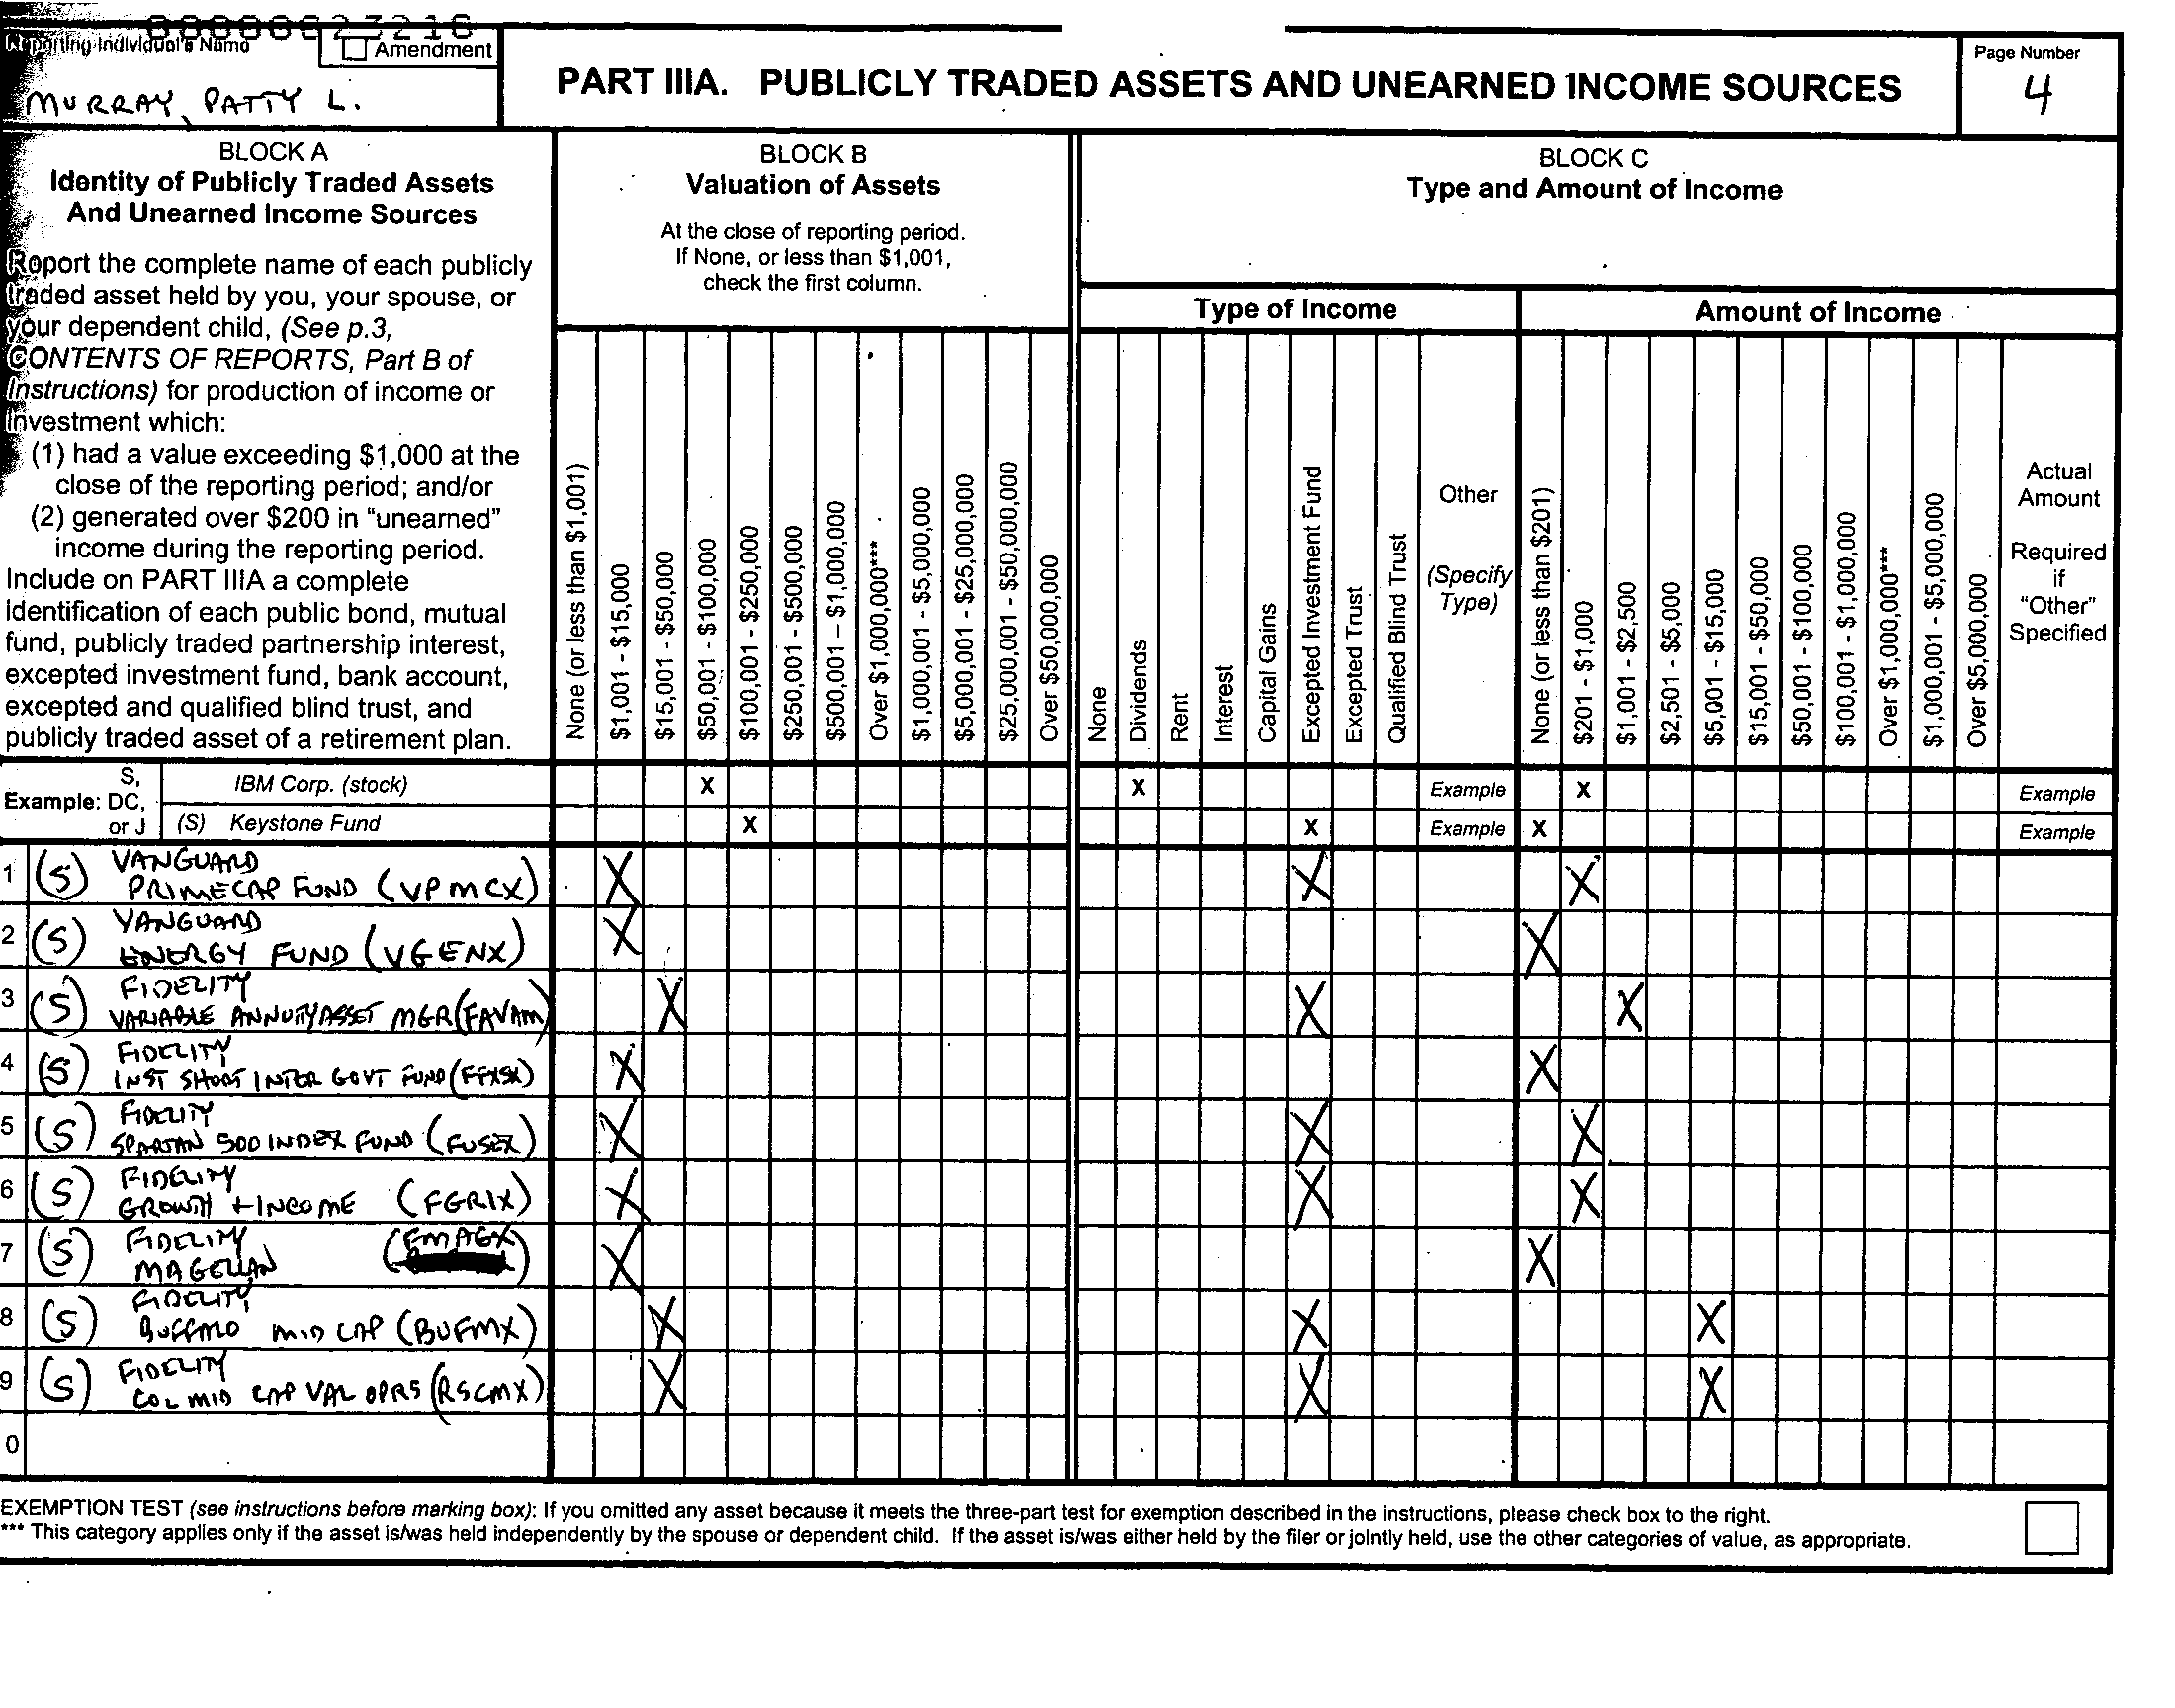 00000023216
Reporting Individual's Name
Amendment
MURRAY, PATTY L.
PART IIIA. PUBLICLY TRADED ASSETS AND UNEARNED INCOME SOURCES
Page Number
4
BLOCK A
Identity of Publicly Traded Assets
And Unearned Income Sources
Report the complete name of each publicly
traded asset held by you, your spouse, or
your dependent child, (See p.3,
CONTENTS OF REPORTS, Part B of
Instructions) for production of income or
investment which:
(1) had a value exceeding $1,000 at the
close of the reporting period; and/or
(2) generated over $200 in “unearned”
income during the reporting period.
Include on PART IIIA a complete
identification of each public bond, mutual
fund, publicly traded partnership interest,
excepted investment fund, bank account,
excepted and qualified blind trust, and
publicly traded asset of a retirement plan.
BLOCK B
Valuation of Assets
At the close of reporting period.
If None, or less than $1,001,
check the first column.
None (or less than $1,001)
$1,001 - $15,000
$15,001 - $50,000
$50,001 - $100,000
$100,001 - $250,000
$250,001 - $500,000
$500,001 – $1,000,000
Over $1,000,000***
$1,000,001 - $5,000,000
$5,000,001 - $25,000,000
$25,000,001 - $50,000,000
Over $50,000,000
BLOCK C
Type and Amount of Income
Type of Income
None
Dividends
Rent
Interest
Capital Gains
Excepted Investment Fund
Excepted Trust
Qualified Blind Trust
Other
(Specify
Type)
Amount of Income
None (or less than $201)
$201 - $1,000
$1,001 - $2,500
$2,501 - $5,000
$5,001 - $15,000
$15,001 - $50,000
$50,001 - $100,000
$100,001 - $1,000,000
Over $1,000,000***
$1,000,001 - $5,000,000
Over $5,000,000
Actual
Amount
Required
if
“Other”
Specified
Example: S, DC, or J
IBM Corp. (stock) X X Example X Example
(S) Keystone Fund X X Example X Example
1 (S) VANGUARD
PRIMECAP FUND (VPMCX) X X X
2 (S) VANGUARD
ENERGY FUND (VGENX) X X
3 (S) FIDELITY
VARIABLE ANNUITY ASSET MGR (FAVAM) X X X
4 (S) FIDELITY
INST SHORT INTER GOVT FUND (FFXSX) X X
5 (S) FIDELITY
SPARTAN 500 INDEX FUND (FUSEX) X X X
6 (S) FIDELITY
GROWTH + INCOME (FGRIX) X X X
7 (S) FIDELITY
MAGELLAN (FMAGX) X X
8 (S) FIDELITY
BUFFALO MID CAP (BUFMX) X X X
9 (S) FIDELITY
COL MID CAP VAL OPRS (RSCMX) X X X
0
EXEMPTION TEST (see instructions before marking box): If you omitted any asset because it meets the three-part test for exemption described in the instructions, please check box to the right.
*** This category applies only if the asset is/was held independently by the spouse or dependent child. If the asset is/was either held by the filer or jointly held, use the other categories of value, as appropriate.